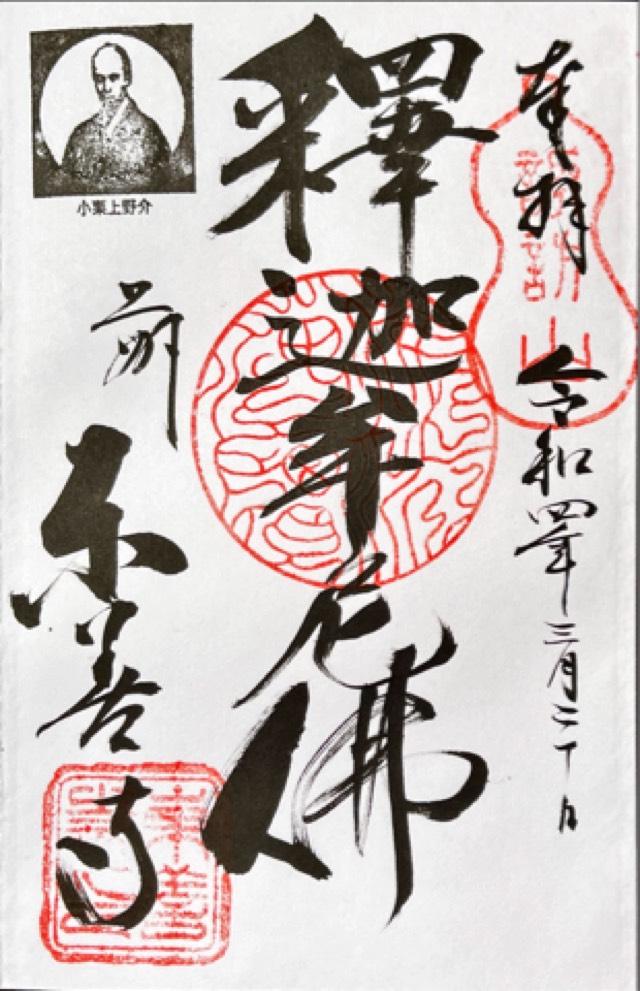 奉拝
令和四年三月二十日
釋迦牟尼佛
小栗上野介
上州
东善寺